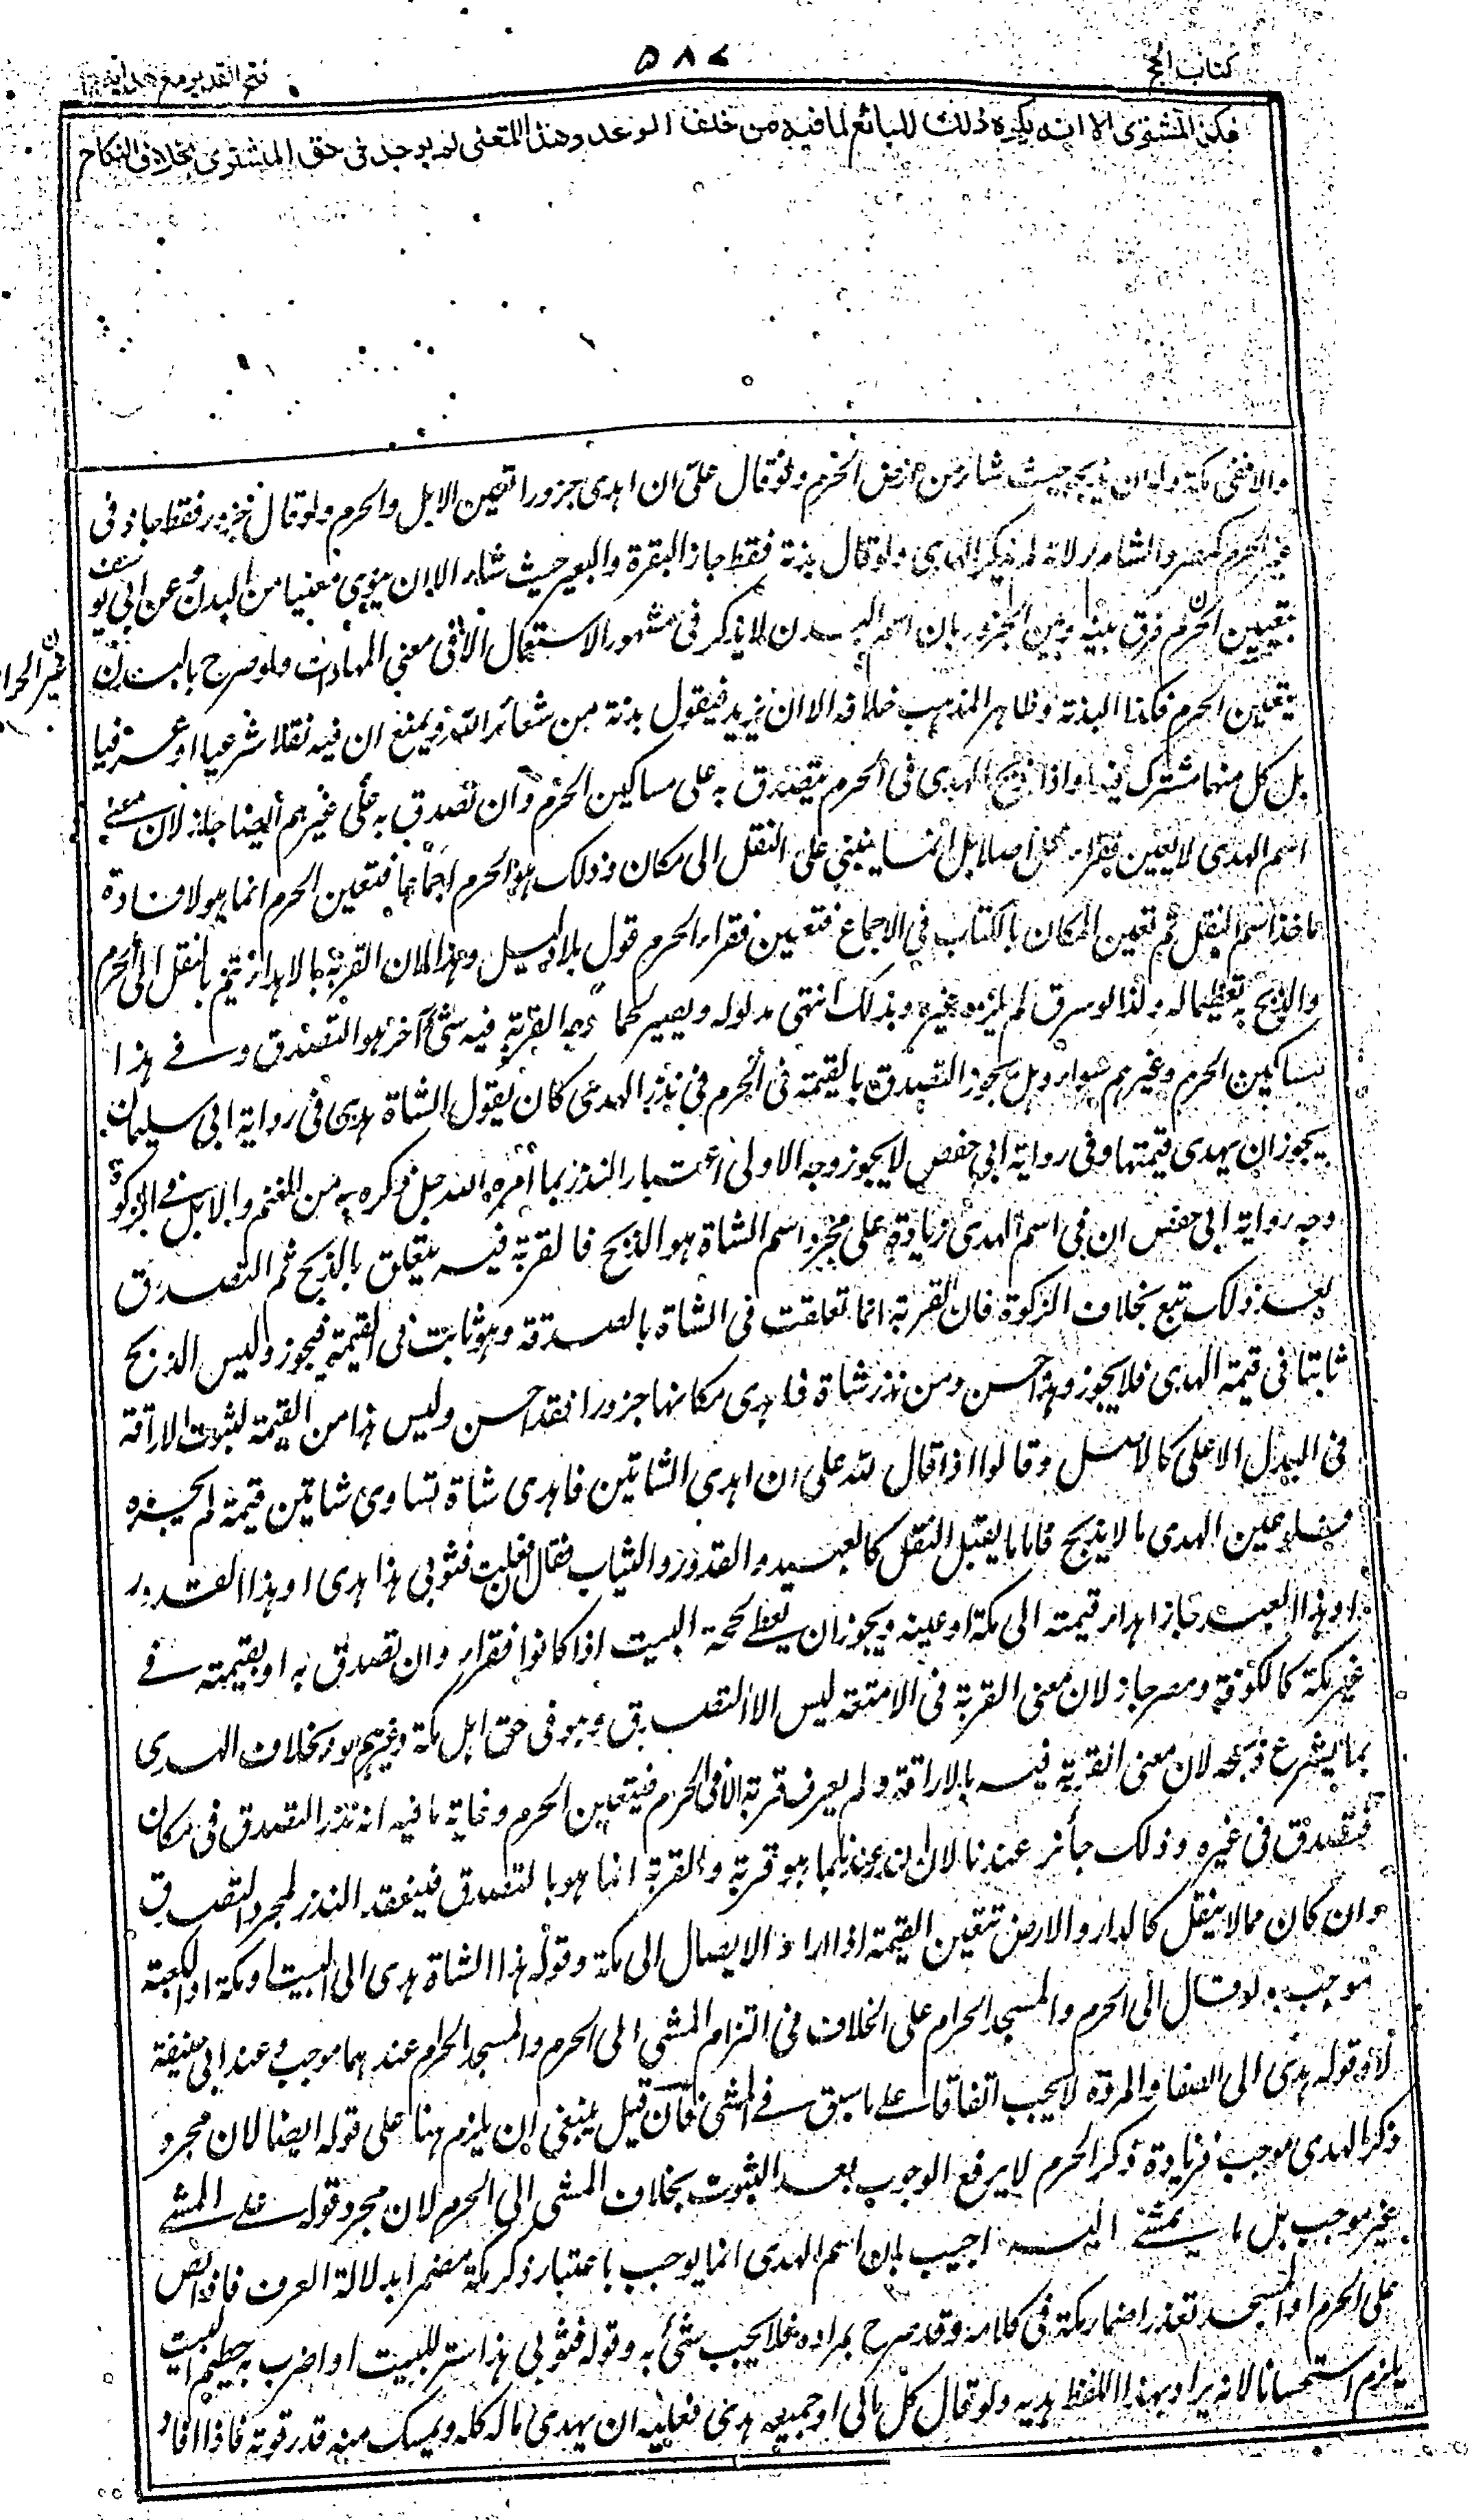 كتاب الحج
٥٨٧
فتح القدير مع هداية ج١
فكذا المشترى الا انه يكره ذلك للبائع لما فيه من خلف الوعد وهذا المعنى لم يوجد فى حق المشترى بخلاف النكاح
والا ففى مكة وله ان يذبح حيث شاء من ارض الحرم ولو قال على ان اهدى جزورا تعين الابل والحرم ولو قال جزور فقط جاز فى
غير الحرم كمصر والشام لانه لم يذكر الهدى ولو قال بدنة فقط جاز البقرة والبعير حيث شاء الا ان ينوى معينا من البدن وعن ابى يوسف
تعيين الحرم فرق بينه وبين الجزور بان اسم البدن لا يذكر فى مشهور الاستعمال الا فى معنى المهادات ولو صرح بالبدن
غير الحرا
يتعين الحرم فكذا البدنة وظاهر المذهب خلافه الا ان يزيد فيقول بدنة من شعائر الله ويمنع ان فيه نقلا شرعيا او عرفيا
بل كل منها مشترك فيها واذا ذبح الهدى فى الحرم يتصدق به على مساكين الحرم وان تصدق به على غيرهم ايضا جاز لان معنى
اسم الهدى لا يعين فقراء محل اصلا بل انما ينبنى على النقل الى مكان وذلك هو الحرم اجماعا فتعين الحرم انما هو لافادة
ماخذ اسم النقل ثم تعين المكان بالكتاب فى الاجماع فتعيين فقراء الحرم قول بلا دليل وهذا لان القربة بالاهداء تتم بالنقل الى الحرم
والذبح به تعظيما له ولذا لو سرق لم يلزمه غيره وبذلك انتهى مدلوله ويصير لحما وجه القربة فيه شئ آخر هو التصدق وفى هذا
مساكين الحرم وغيرهم سواء وهل يجوز التصدق بالقيمة فى الحرم فى نذر الهدى كان يقول الشاة هدى فى رواية ابى سليمان
يجوز ان يهدى قيمتها وفى رواية ابى حفص لا يجوز وجه الاولى اعتبار النذر بما امره الله جل ذكره به من الغنم والابل فى الزكوة
وجه رواية ابى حفص ان فى اسم الهدى زيادة على مجرد اسم الشاة هو الذبح فالقربة فيه يتعلق بالذبح ثم التصدق
بعد ذلك تبع بخلاف الزكوة فان القربة انما تعلقت فى الشاة بالصدقة وهو ثابت فى القيمة فيجوز وليس الذبح
ثابتا فى قيمة الهدى فلا يجوز وهذا حسن ومن نذر شاة فاهدى مكانها جزورا فقد احسن وليس هذا من القيمة لثبوت الاراقة
فى البدل الاعلى كالاصل وقالوا اذا قال لله على ان اهدى الشاتين فاهدى شاة تساوى شاتين قيمة لم يجزه
فلو عين الهدى ما لا يذبح فاما ما يقبل النقل كالعبيد والقدور والثياب فقال ان فعلت فثوبى هذا هدى او هذا القدر
او هذا العبد جاز اهداء قيمته الى مكة او عينه ويجوز ان يعطى لحجبة البيت اذا كانوا فقراء وان تصدق به او بقيمته فى
غير مكة كالكوفة ومصر جاز لان معنى القربة فى الامتعة ليس الا التصدق وهو فى حق اهل مكة وغيرهم سواء بخلاف الهدى
بما يشرع ذبحه لان معنى القربة فيه بالاراقة ولم يعرف قربة الا فى الحرم فيتعين الحرم وغاية ما فيه انه نذر التصدق فى مكان
فتصدق فى غيره وذلك جائز عندنا لان النذر عندنا بما هو قربة والقربة انما هو بالتصدق فينعقد النذر لمجرد التصدق
وان كان مما لا ينقل كالدار والارض تتعين القيمة اذا اراد الايصال الى مكة وقوله هذا الشاة هدى الى البيت او مكة او الكعبة
موجب ولو قال الى الحرم والمسجد الحرام على الخلاف فى التزام المشى الى الحرم والمسجد الحرام عندهما موجب وعند ابى حنيفة
لا وقوله هدى الى الصفا والمروة لا يجب اتفاقا على ما سبق فى المشى فان قيل ينبغى ان يلزم هنا على قوله ايضا لان مجرد
ذكر الهدى موجب فزيادة ذكر الحرم لا يرفع الوجوب بعد الثبوت بخلاف المشى الى الحرم لان مجرد قوله على المشى
غير موجب بل ما يمشى اليه اجيب بان اسم الهدى انما يوجب باعتبار ذكر مكة مضمرا بدلالة العرف فاذا نص
على الحرم او المسجد تعذر اضمار مكة فى كلامه وقد صرح بمراده فلا يجب شئ به وقوله فثوبى هذا ستر للبيت او اضرب به حطيم البيت
يلزم استحسانا لانه يراد بهذا اللفظ هديه ولو قال كل مالى او جميعه هدى فعليه ان يهدى ماله كله ويمسك منه قدر قوته فاذا افاد